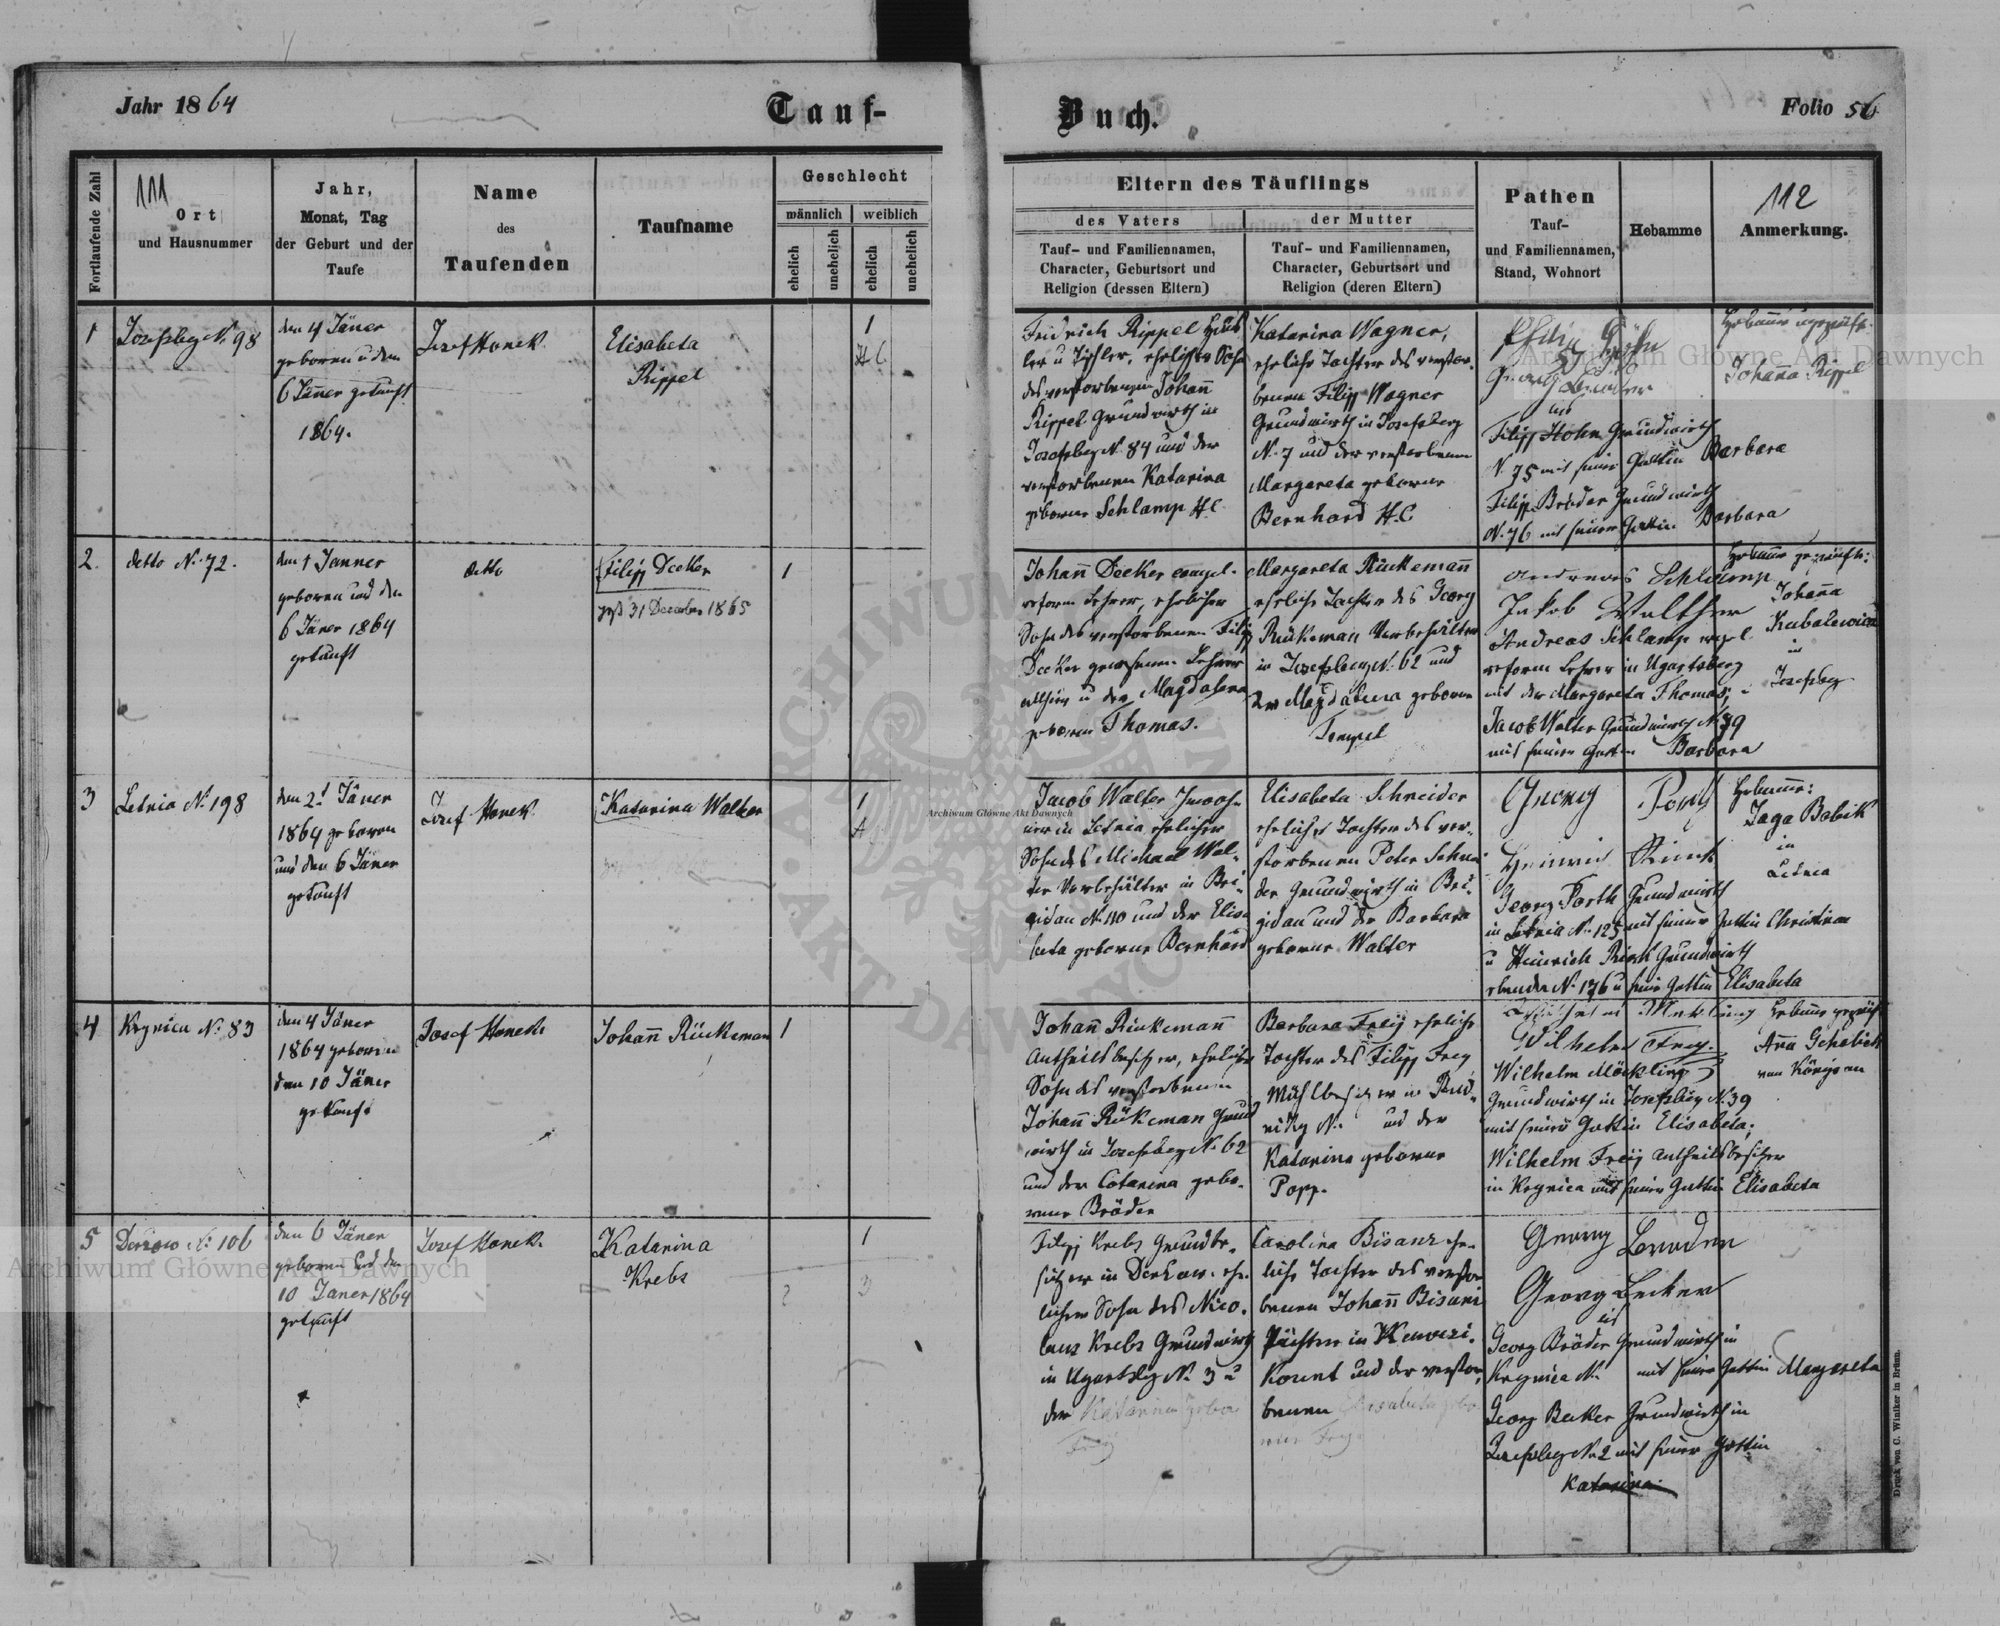 Jahr 1864
Tauf-
Buch.
Folio 56
111
112
Fortlaufende Zahl
Ort
und Hausnummer
Jahr,
Monat, Tag
der Geburt und der
Taufe
Name
des
Taufenden
Taufname
Geschlecht
männlich
weiblich
ehelich
unehelich
ehelich
unehelich
Eltern des Täuflings
des Vaters
der Mutter
Tauf- und Familiennamen,
Character, Geburtsort und
Religion (dessen Eltern)
Tauf- und Familiennamen,
Character, Geburtsort und
Religion (deren Eltern)
Pathen
Tauf-
und Familiennamen,
Stand, Wohnort
Hebamme
Anmerkung.
1
Josefsberg N. 98
den 4 Jäner
geboren u den
6 Jäner getauft
1864.
Josef Honek
Elisabeta
Rippel
1
H.C.
Fridrich Rippel
ler u Tischler, ehelicher Sohn
des verstorbenen Johann
Rippel Grundwirth in
Josefsberg N. 84 und der
verstorbenen Katarina
geborne Schlamp H.C.
Katarina Wagner,
eheliche Tochter des verstor-
benen Filipp Wagner
Grundwirth in Josefsberg
N. 7 und der verstorbenen
Margareta geborne
Bernhard H.C
Filipp Hohn Grundwirth
N. 75 mit seiner Gattin Barbara
Filipp Bröder Grundwirth
N. 76 mit seiner Gattin Barbara
Johanna Rippel
2.
detto N. 72.
den 1 Janner
geboren und den
6 Jäner 1864
getauft
detto
Filipp Decker
31 December 1865
1
Johann Decker evangel.
reform Lehrer, ehelicher
Sohn des verstorbenen Filipp
Decker gewesenen Lehrer
allhier u der Magdalena
geboren Thomas.
Margareta Rückemann
eheliche Tochter des Georg
Rückeman Vorbehälter
in Josefsberg N. 62 und
der Magdalena geborne
Tempel
Andreas Schlamp
Jakob Walther
Andreas Schlamp evgel
reform Lehrer in Ugartsberg
mit der Margareta Thomas;
Jacob Walter Grundwirth N. 79
mit seiner Gattin Barbara
Hebamme geprüfte:
Johanna
Kubalewicz
in
Josefsberg
3
Letnia N. 198
den 2t Jäner
1864 geboren
und den 6 Jäner
getauft
Josef Honek
Katarina Walter
1
Jacob Walter Inwoh-
ner in Letnia ehelicher
Sohn des Michael Wal-
ter Vorbehälter in Bri-
gidau N. 110 und der Elisa
beta geborne Bernhard
Elisabeta Schneider
eheliche Tochter des ver-
storbenen Peter Schnei-
der Grundwirth in Bri-
gidau und der Barbara
geborne Walter
Georg
Heinrich
Georg Forth Grundwirth
in Letnia N. 125 mit seiner Gattin Christina
u Heinrich Grundwirth
ebenda N. 176 u seine Gattin Elisabeta
Hebamme:
Jaga Babik
in
Letnia
4
Krynica N. 83
den 4 Jäner
1864 geboren
den 10 Jäner
getauft
Josef Honek
Johann Rückeman
1
Johann Rückemann
Antheilsbesitzer, ehelicher
Sohn des verstorbenen
Johann Rückeman Grund
wirth in Josefsberg N. 62
und der Catarina gebo-
rene Bröder
Barbara Freij eheliche
Tochter des Filipp Frey
Mühlbesitzer in
N. und der
Katarina geborne
Popp.
Wilhelm Frey.
Wilhelm Möckling
Grundwirth in Josefsberg N. 39
mit seiner Gattin Elisabeta;
Wilhelm Freij Antheilsbesitzer
in Krynica mit seiner Gattin Elisabeta
Hebamme geprüft
Anna
von Königsau
5
Derzow N. 106
den 6 Jäner
geboren und den
10 Janer 1864
getauft
Josef Honek.
Katarina
Krebs
1
Filipp Krebs Grundbe-
sitzer in Derzow. ehe-
licher Sohn des Nico-
laus Krebs Grundwirth
in Ugartsbg N. 3 u
der Katarina gebo
Frey
Carolina Bisanz ehe-
liche Tochter des verstor
benen Johann Bisanz
Pächter in
und der verstor
benen Elisabeta gebo
rene Frey
Georg Broeder
Georg Becker
Georg Bröder Grundwirth in
Krynica N. mit seiner Gattin Margareta
Georg Becker Grundwirth in
Josefsberg N. 2 mit seiner Gattin
Katarina
Druck von C. Winiker in Brünn.
Archiwum Główne Akt Dawnych
Archiwum Główne Akt Dawnych
Archiwum Główne Akt Dawnych
ARCHIWUM
AKT DAWNYCH